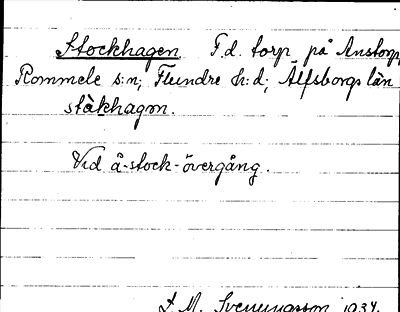 Stockhagen F.d. torp på Anstorp,
Rommele s:n, Flundre h:d, Älfsborgs län
ståkhagen.
Vid å-stock-övergång.
J. M. Svenungsson 1937.